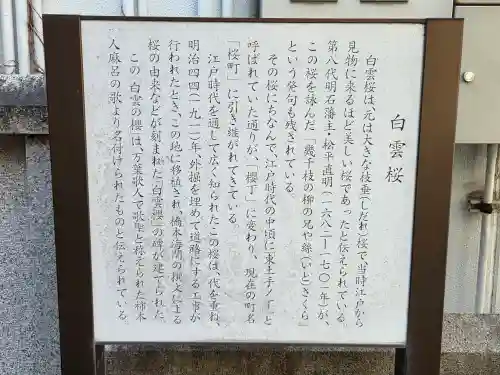 白雲桜
白雲桜は、元は大きな枝垂(しだれ)桜で、当時江戸から
見物に来るほど美しい桜であったと伝えられている。
第八代明石藩主・松平直明(一六八二ー一七〇一年)が、
この桜を詠んだ「幾千枝の柳の兄や絲(いと)ざくら」
という発句も残されている。
その桜にちなんで、江戸時代の中頃に「東土手ノ丁」と
呼ばれていた通りが、「櫻丁」に変わり、現在の町名
「桜町」に引き継がれてきている。
江戸時代を通して広く知られたこの桜は、代を重ね、
明治四四(一九一一)年、外掘を埋めて道路にする工事が
行われたとき、この地に移植され、橋本海関の撰文による
桜の由来などが刻まれた「白雲櫻」の碑が建てられた。
この「白雲の櫻」は、万葉歌人で歌聖と称えられた柿本
人麻呂の歌より名付けられたものと伝えられている。